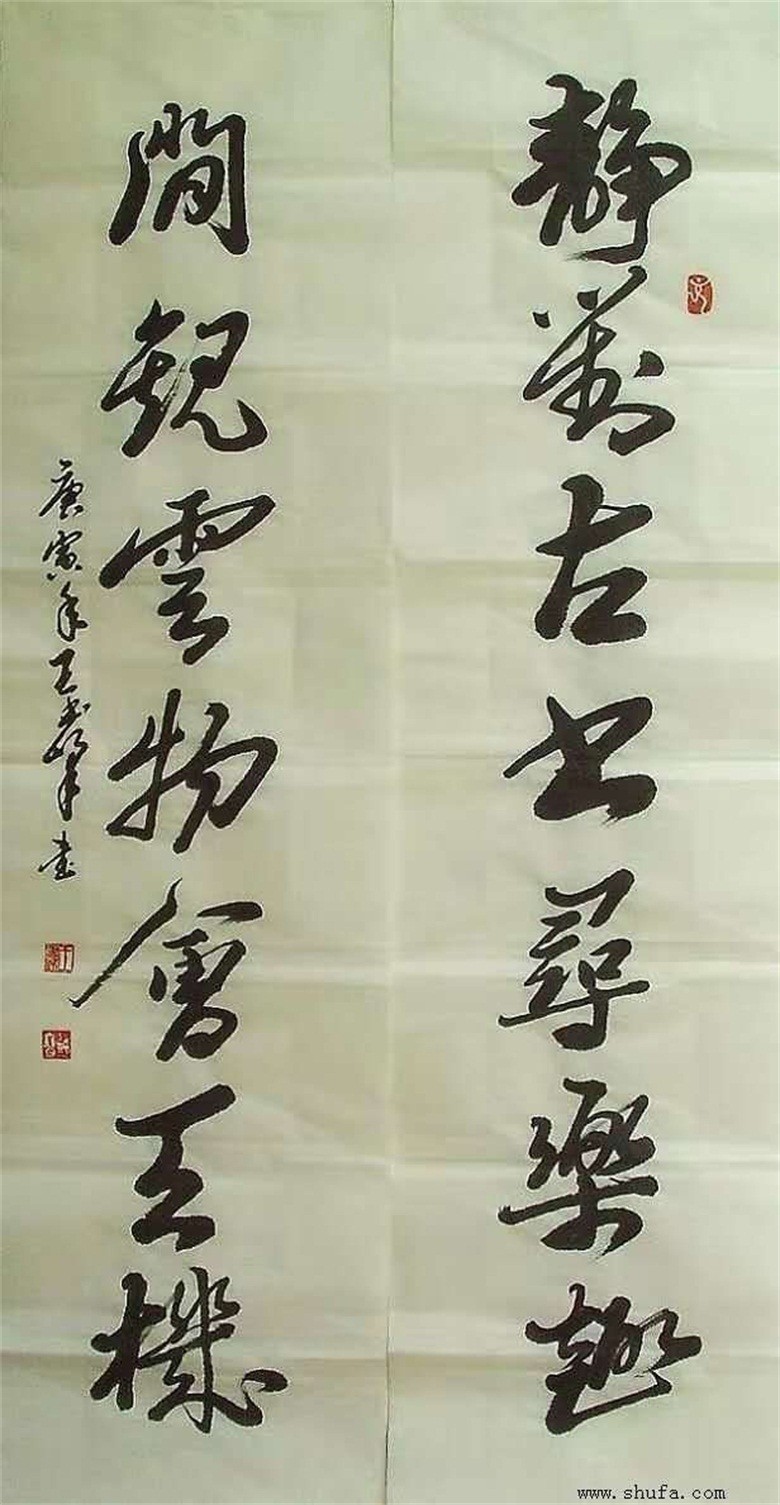 靜對古書尋樂趣
閒觀雲物會天機
庚寅年王書峰書
www.shufa.com